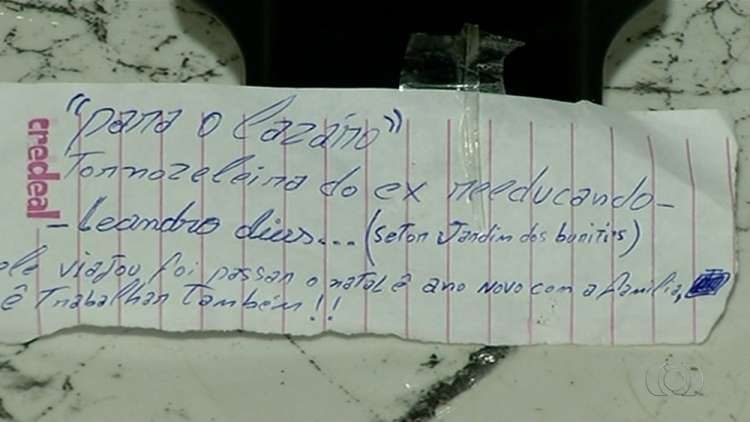 "para o Lazáro"
Tornozeleira do ex reeducando-
- Leandro dias... (setor Jardim dos buritis)
ele viajou foi passar o natal ê ano novo com a família,
ê Trabalhar também!!
credeal